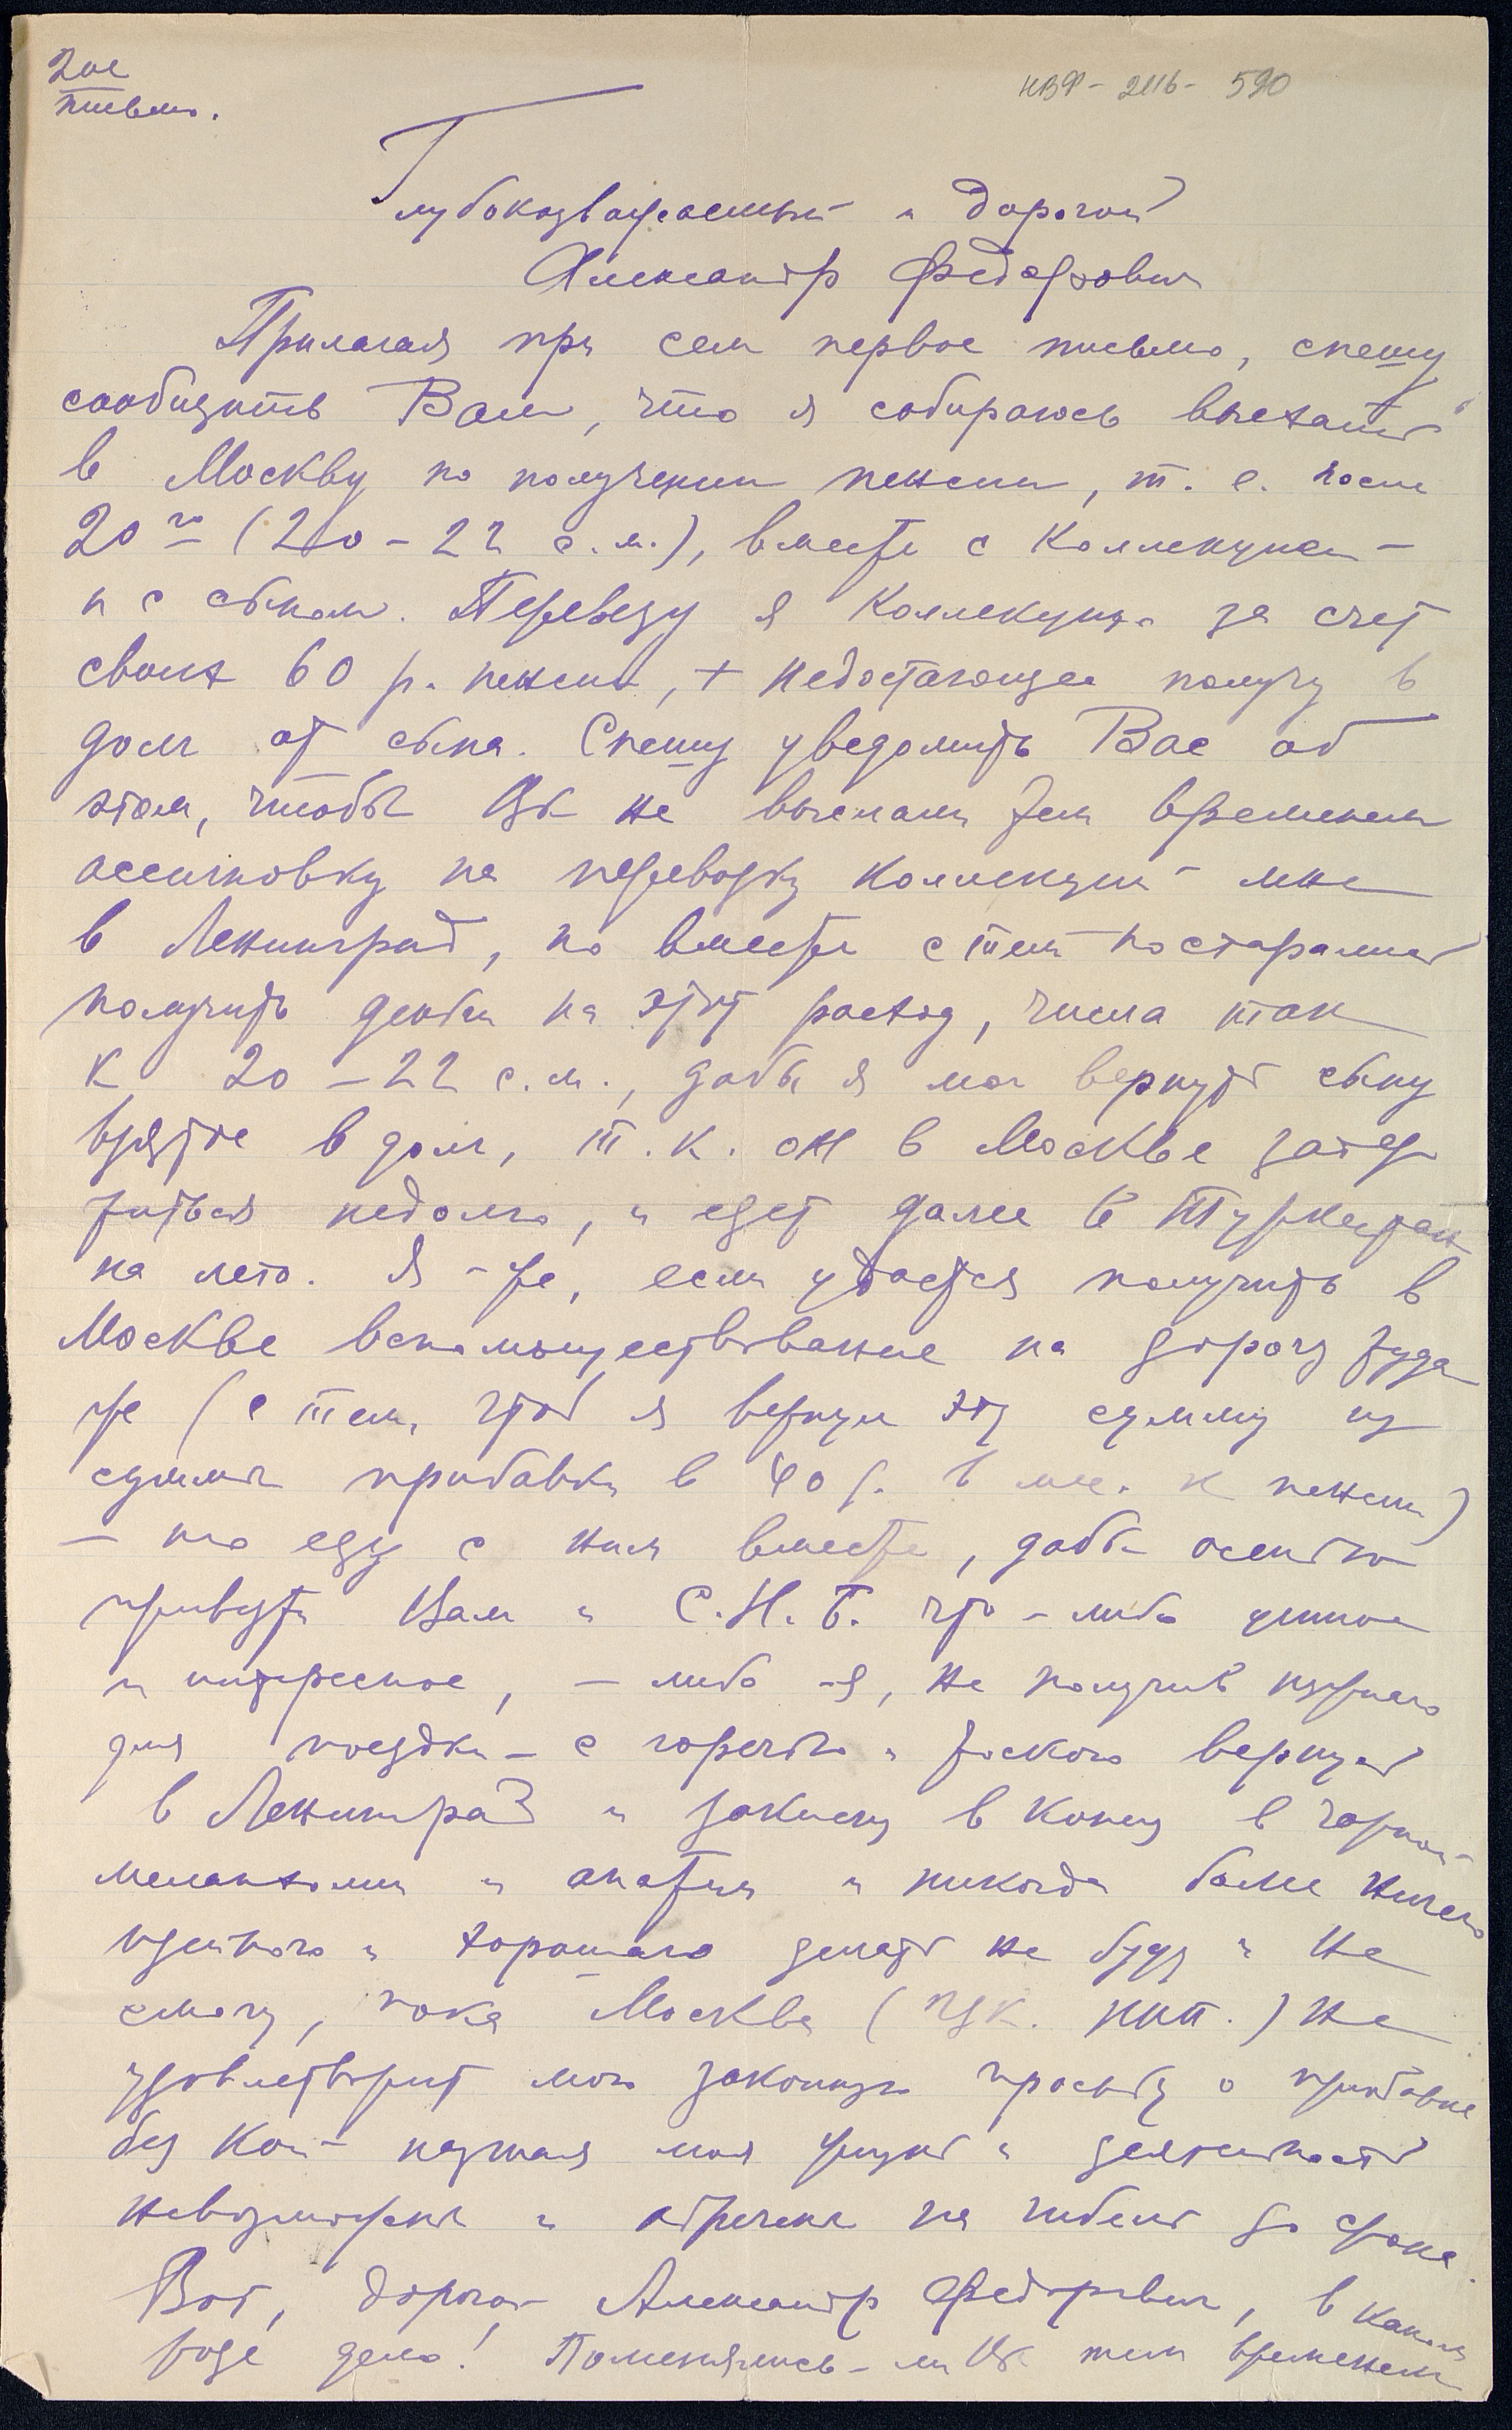 2ое
письмо.
НВФ - 2116 - 590
Глубокоуважаемый и дорогой
Александр Федорович
Прилагая при сем первое письмо, спешу
сообщить Вам, что я собираюсь выехать
в Москву по получении пенсии, т. е. после
20го (20 – 22 с.м.), вместе с коллекцией
и с сыном. Перевезу я коллекцию за счет
своих 60 р. пенсии, + недостающее получу в
долг от сына. Спешу уведомить Вас об
этом, чтобы Вы не выслали тем временем
ассигновку на перевозку коллекций мне
в Ленинград, но вместе с тем постарались
получить деньги на этот расход, числа так
к 20 – 22 с.м., дабы я мог вернуть сыну
взятое в долг, т.к. он в Москве задер
жится недолго, и едет далее в Туркестан
на лето. Я-же, если удастся получить в
Москве вспомоществование на дорогу туда
же (с тем, чтоб я вернул эту сумму из
суммы прибавки в 40 р. в мес. к пенсии)
– то еду с ним вместе, дабы осенью
привезти Вам и С.Н.Б. что-либо ценное
и интересное, – либо я, не получив нужного
для поездки – с горечью и тоскою вернусь
в Ленинград и закисну в конец в черной
меланхолии и апатии и никогда более ничего
ценного и хорошего делать не буду и не
смогу, пока Москва не
удовлетворит мою законную просьбу о прибавке
без кой- научная моя жизнь и деятельность
невозможны и обречены на гибель до срока.
Вот, дорогой Александр Федорович, в каком
роде дело! Поменялись-ли Вы тем временем